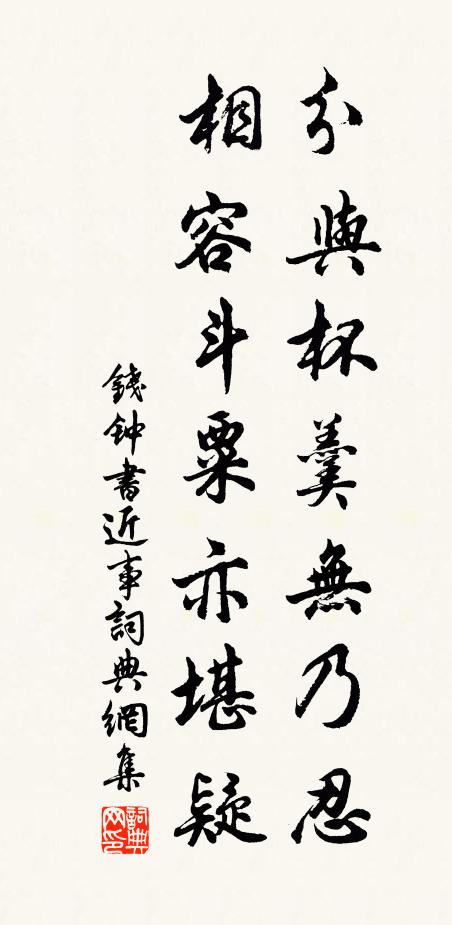 分與杯羹無乃忍
相容斗粟亦堪疑
錢钟書近事詞典網集
詞典网印